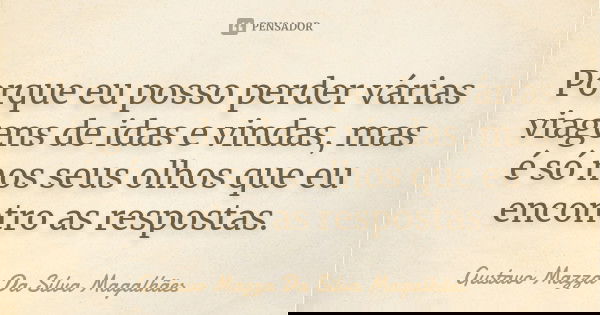 PENSADOR
Porque eu posso perder várias
viagens de idas e vindas, mas
é só nos seus olhos que eu
encontro as respostas.
Gustavo Mazza Da Silva Magalhães